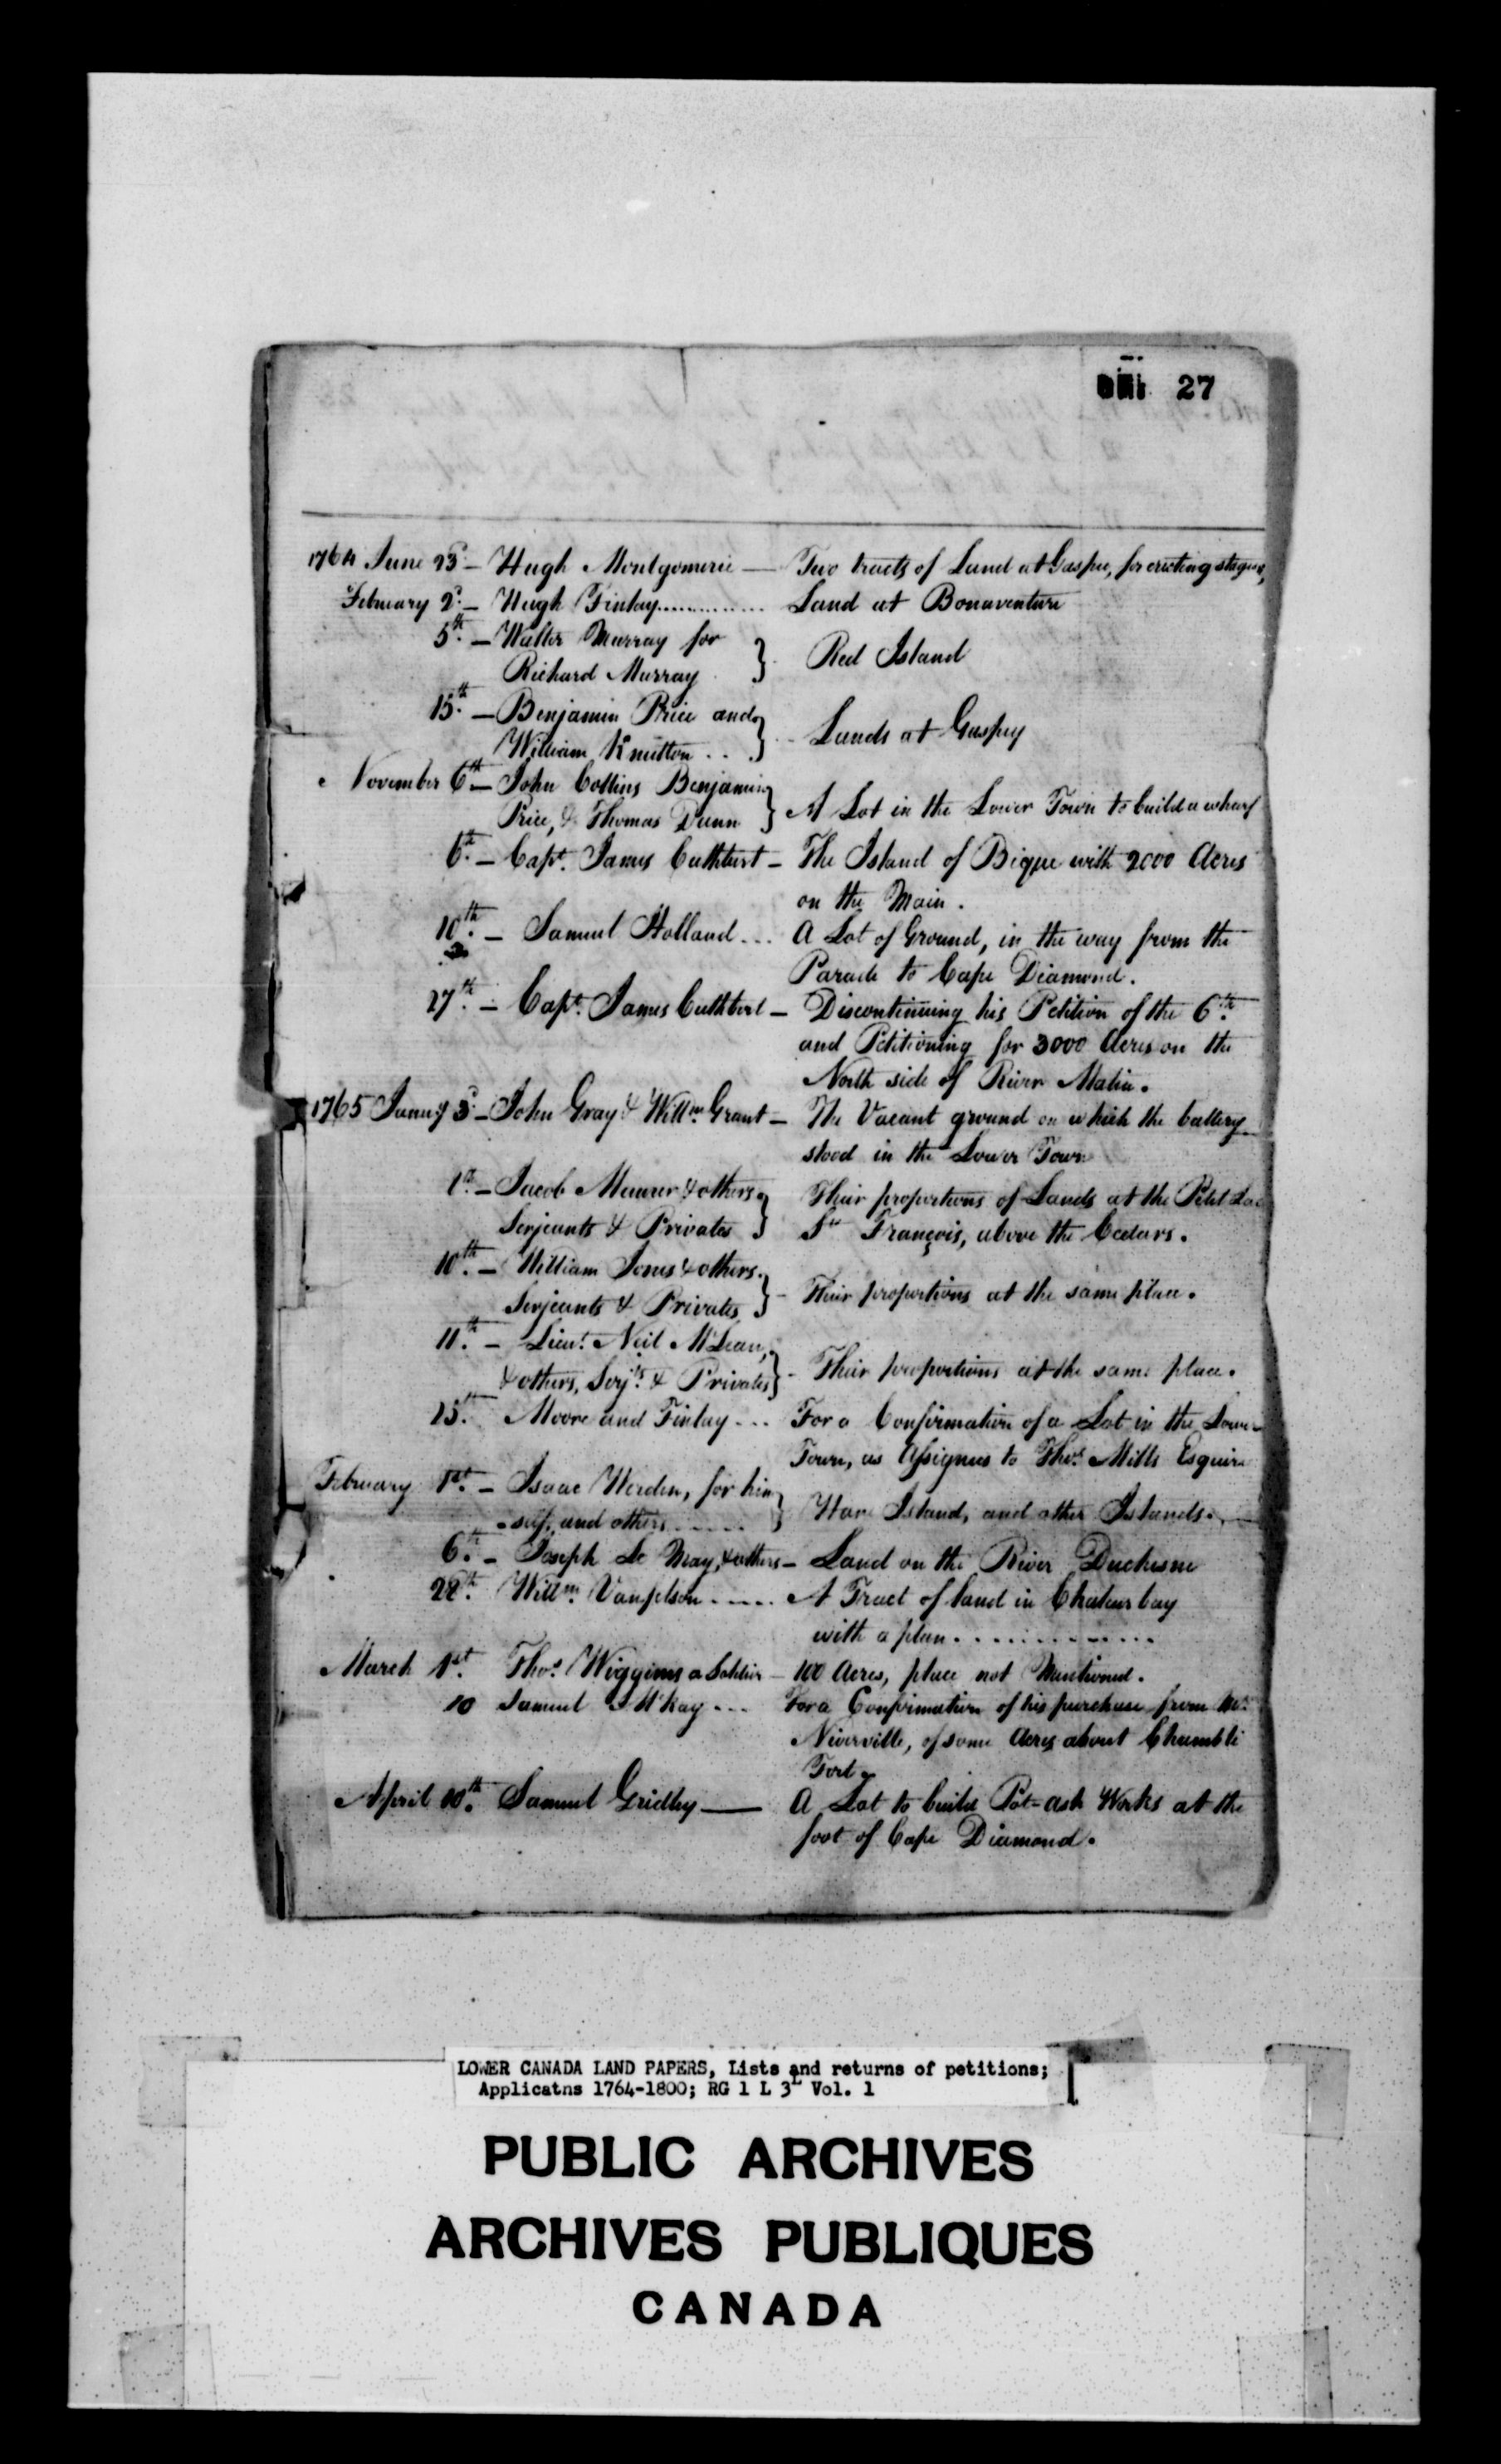 27
1764 June 23d - Hugh Montgomerie - Two tracts of Land at Gaspee, for erecting stages,
February 2d - Hugh Finlay............. Land at Bonaventure
5th. - Walter Murray for
Richard Murray } Red Island
15th. - Benjamin Price and
William Knutton . . . } - Lands at Gaspey
November 6th - John Collins Benjamin
Price, & Thomas Dunn } A Lot in the Lower Town to build a wharf
6th. - Capt. James Cuthbert - The Island of Bique with 2000 Acres
on the Main.
10th. - Samuel Holland... A Lot of Ground, in the way from the
Parade to Cape Diamond.
27th. - Capt. James Cuthbert - Discontinuing his Petition of the 6th.
and Petitioning for 3000 Acres on the
North side of River Matin.
1765 Janu.y 3d - John Gray & Willm. Grant - The Vacant ground on which the battery
stood in the Lower Town
- Jacob Maurer & others
Serjeants & Privates } Their proportions of Lands at the Petit Lac
St. François, above the Cedars.
10th. - William Jones & others.
Serjeants & Privates } - Their proportions at the same place.
11th. - Lieut. Neil McLean,
& others, Serjts. & Privates } - Their proportions at the same place.
15th. Moore and Finlay... For a Confirmation of a Lot in the Lower
Town, as Assignees to Thos. Mills Esquire
February 1st. - Isaac Werden, for him
self, and others...... } Hare Island, and other Islands.
6th. - Joseph Le May, & others - Land on the River Duchesne
28th. Willm. Vanfelson..... A Tract of land in Chaleur bay
with a plan.............
March 1st. Thos. Wiggins a Soldier - 100 Acres, place not Mentioned.
10 Samuel McKay... For a Confirmation of his purchase from Mr.
Niverville, of some Acres about Chambli
Fort
April 10th. Samuel Gridley — A Lot to build Pot=ash Works at the
foot of Cape Diamond.
LOWER CANADA LAND PAPERS, Lists and returns of petitions;
Applicatns 1764-1800; RG 1 L 3L Vol. 1
PUBLIC ARCHIVES
ARCHIVES PUBLIQUES
CANADA